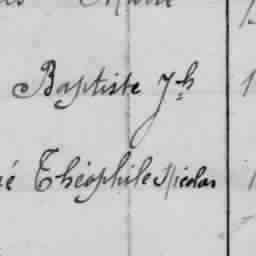 Baptiste Jh
é Théophile Nicolas